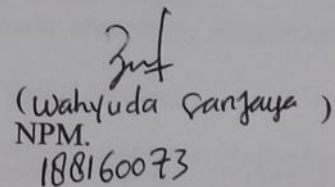 (Wahyuda Sanjaya)
NPM.
188160073